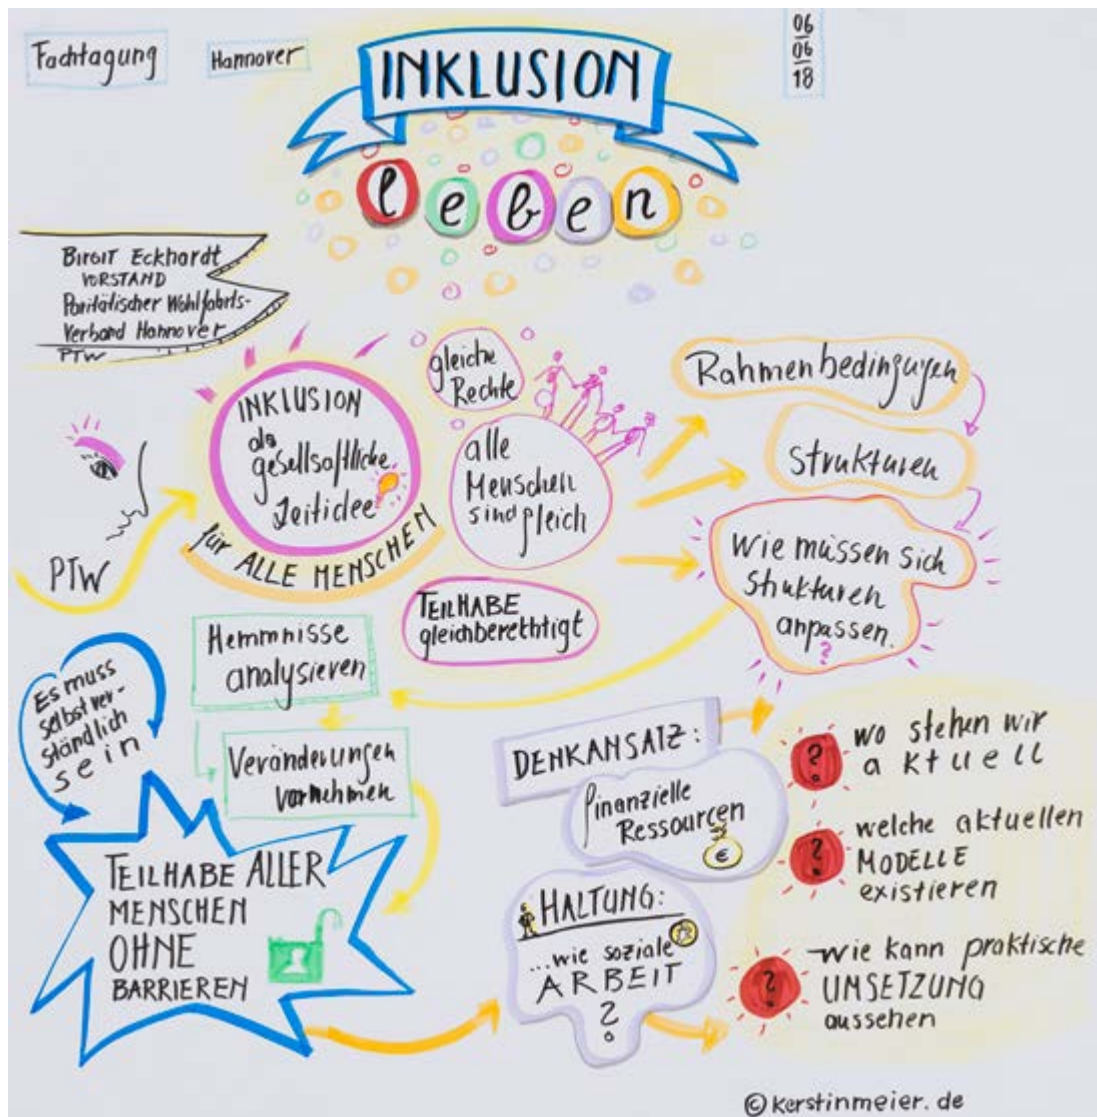 Fachtagung
Hannover
06
06
18
INKLUSION
leben
BIRGIT Eckhardt
VORSTAND
Paritätischer Wohlfahrts-
Verband Hannover
PTW
PTW
INKLUSION
als
gesellsaftliche
Leitidee
für ALLE MENSCHEN
gleiche
Rechte
alle
Menschen
sind gleich
TEILHABE
gleichberechtigt
Rahmenbedingungen
Strukturen
Wie müssen sich
Strukturen
anpassen.
?
Hemmnisse
analysieren
Veränderungen
vornehmen
Es muss
selbstver-
ständlich
sein
TEILHABE ALLER
MENSCHEN
OHNE
BARRIEREN
DENKANSATZ:
finanzielle
Ressourcen
€
HALTUNG:
...wie soziale
ARBEIT
?
?
wo stehen wir
aktuell
?
welche aktuellen
MODELLE
existieren
?
wie kann praktische
UMSETZUNG
aussehen
© kerstinmeier.de